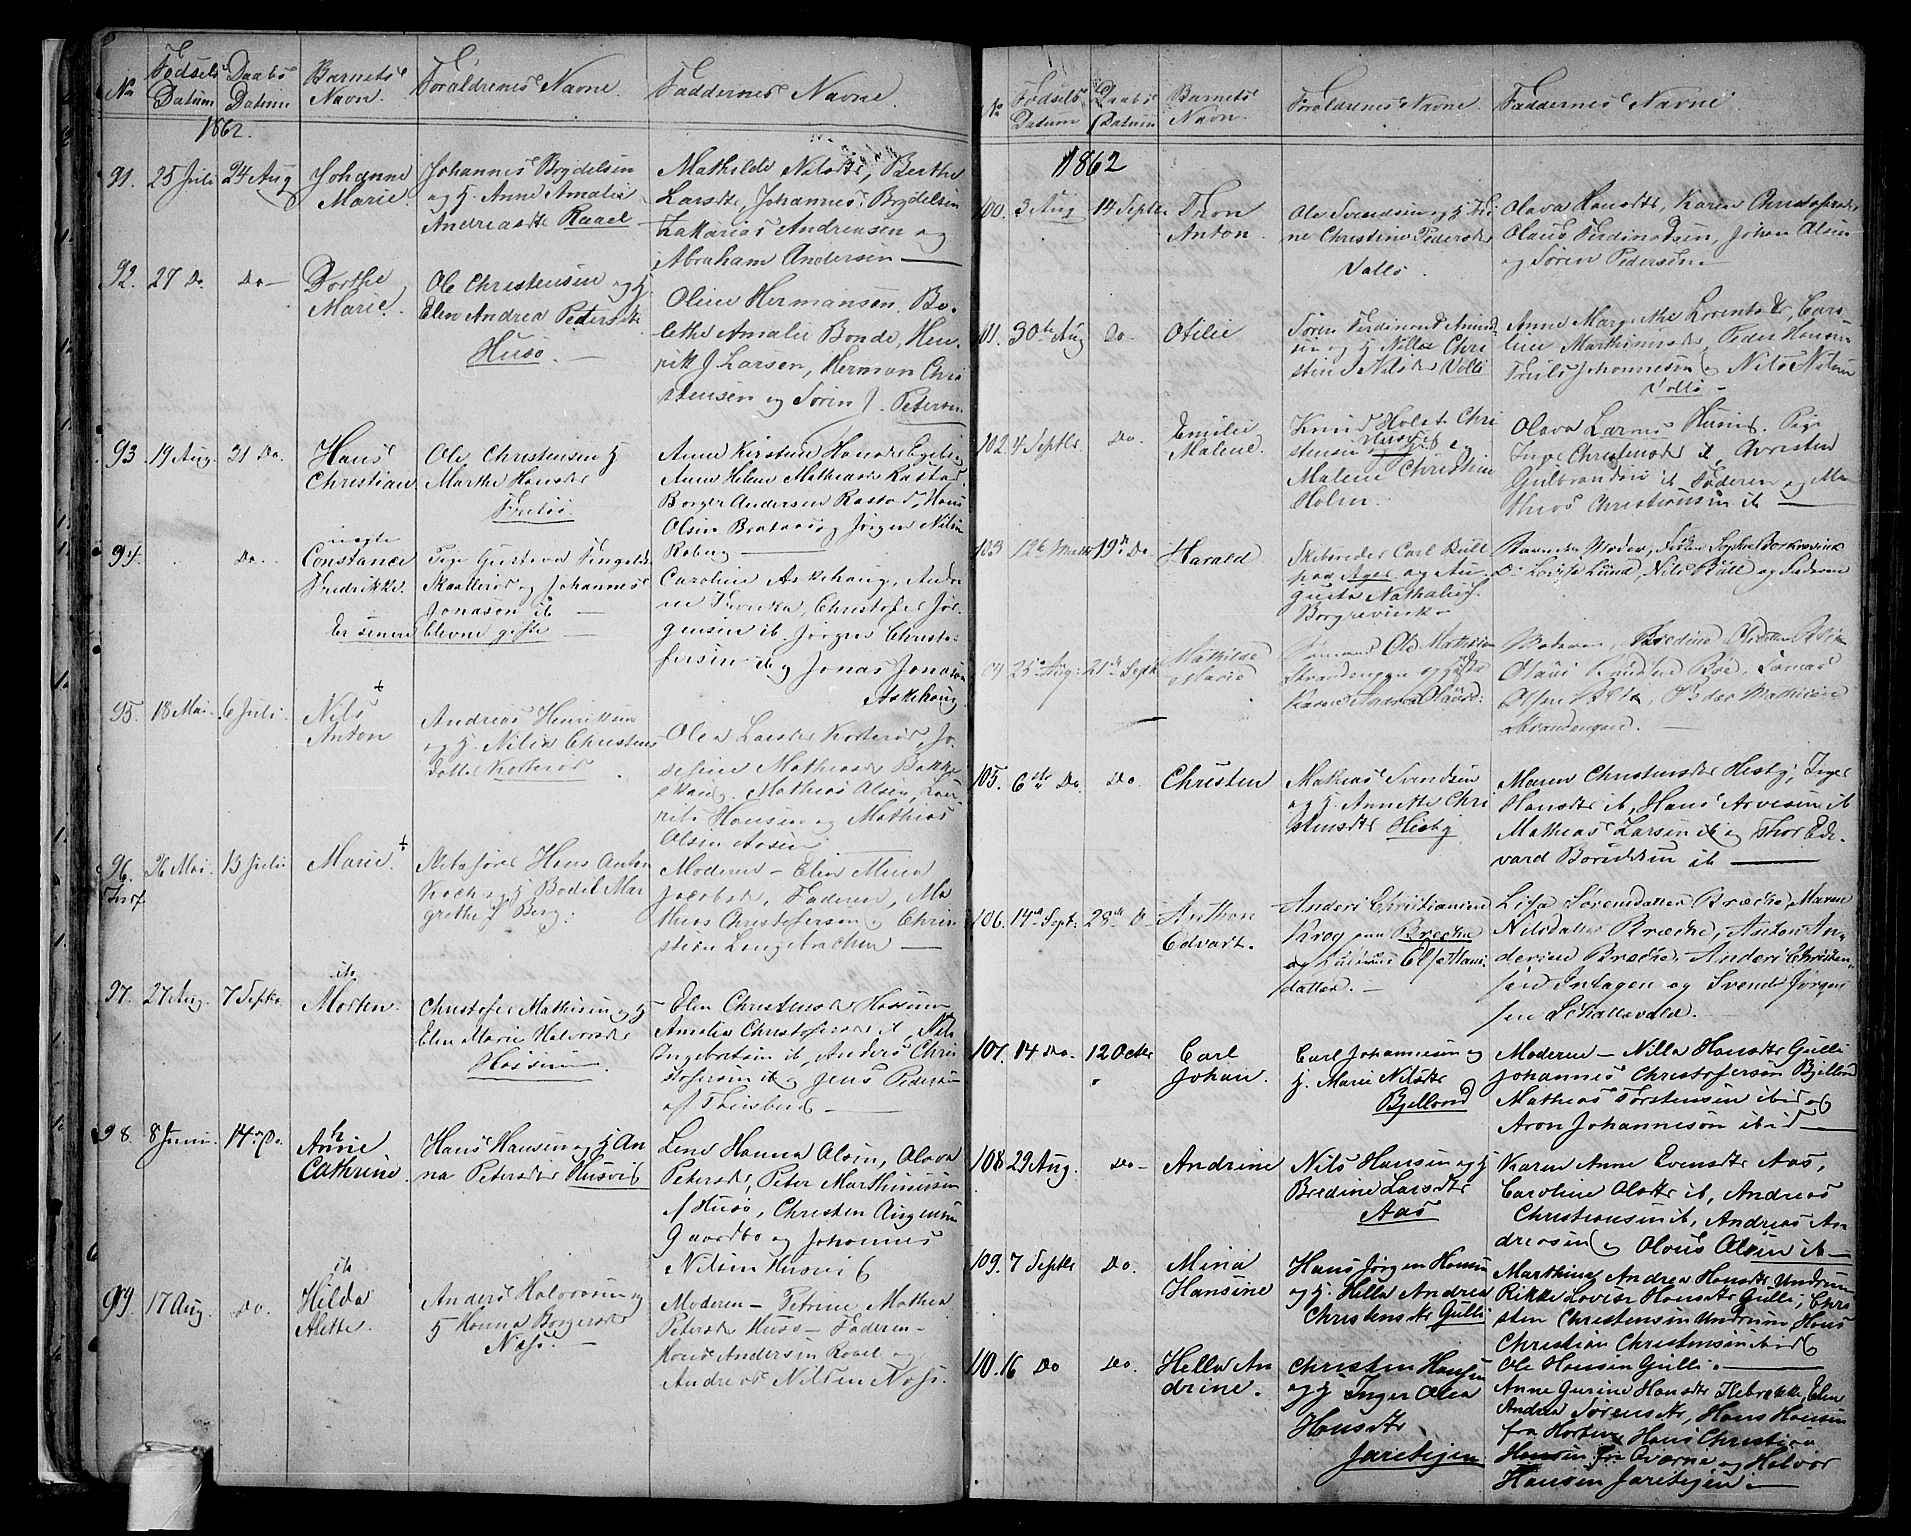 No Fødsels Datum Daabs Datum Barnets Navn. Forældrenes Navne. Faddernes Navne.
1862.
91. 25 Juli 24 Aug Johanne Marie.
Johannes Brydelsen
og H. Anne Amalie
Andreasdtr Raael
Mathilde Nilsdtr, Berthe
Larsdtr, Johannes Brydelsen
Zakarias Andreasen og
Abraham Andersen
92. 27 Do. Do Dorthe Marie.
Ole Christensen og H.
Elen Andrea Pedersdtr
Husø.
Oline Hermansen. Bo-
lethe Amalie Bonde, Hen-
rik J Larsen, Herman Chri
stensen og Søren J. Petersen
93 19 Aug. 31 Do. Hans Christian
Ole Christensen H
Marthe Hansdtr
Anne Kirstine Hansdtr
Anne Helene Mathiasdtr Rastad
Borger Andersen Rastad, Hans
Olsen Brataas og Jørgen Nilsen
Roberg
94. Do. uægte Constance Fredrikke.
Pige Gustava
og Johannes
Jonasen ib
Er senere blevne gifte
Caroline Askehaug, Andri
ne Christofer Jør-
gensen ib. Jørgen Christo-
fersen ib og Jonas Jonasen
Askehaug
95. 18 Mai. 6 Juli. Nils Anton
Andreas Henriksen
og H. Nilia Christens
datter
Olea Larsdtr
Mathias Olsen, Lau-
rits Hansen og Mathias
Olsen Aasen
96. 26 Mai. 13 Juli Marie
Hans Anton
Koch og H Bodil Mar
grethe f Berg.
Moderen – Elen Mina
Jacobsdtr, Faderen, Ma
thias Christofersen og Chri
stian Langebrechen
97. 27 Aug. 7 Septbr Morten.
Christofer Mathisen og H
Elen Marie Halvorsdtr
Hassum.
Elen Christensdtr Hassum
Amalia Christofersdtr ib, Nils
Ingebretsen ib, Anders Chri
stofersen ib og Jens Pedersen
af Tønsberg
98. 8 Juni. 14 Do. Anne Cathrine
Hans Hansen og H An
na Petersdtr Husvig
Lene Hanna Olsen, Olava
Petersdtr, Peter Marthinussen
f Husø, Christen Augensen
Gaardbo og Johannes
Nilsen Husvig
99. 17 Aug. Do. Hilda Alette.
Anders Halvorsen og
H Hanna Borgersdtr
Næss.
Moderen – Petrine Mathea
Petersdtr Husø – Faderen –
Hans Andersen Raael og
Andreas Nilsen Næss.
No Fødsels Datum Daabs Datum Barnets Navn. Forældrenes Navne. Faddernes Navne
1862
100. 3 Aug 14 Septbr Thor Anton.
Ole Svendsen og H Tri
ne Christine Pedersdtr
Vallø.
Olava Hansdtr, Karen Christofersdtr
Olaus Ferdinandsen, Johan Olsen
og Søren Pedersen.
101. 30te Aug Do. Otilie
Søren Ferdinand Amund
sen og H Nilla Chri
stine Nilsdtr Vallø
Anne Margrethe Lorentsdtr, Caro
line Marthinusdtr, Peder Hansen
Truls Johannesen og Nils Nilsen
Vallø
102. 4 Septbr. Do. Emilie Malene.
Knud Holst Chri
stensen Husvig og
Malene Christine
Holm.
Olava Larsen Husvig. Pige
Inge Christensdtr ib, Christen
Gulbrandsen ib Faderen og Ma
thias Christiansen ib
103 12te 19de Do Harald
Skibsreder Carl Bull
paa Ager og Au
gusta Nathalie f.
Borgrevink
Barnets Moder, Sophie Borkrevink
Lovise Lund, Nils Bull og Faderen
104 25 Aug: 21 Septb Mathilde Marie
Ole Mathisen
Strandengen og Hustru
Karen Andrea Olausd:
Moderen,
Olaus
Olsen Peder Mathisen
Strandengen.
105. 6te Do. Do. Christen
Mathias Svendsen
og H Annette Chri
stensdtr Hesby
Maren Christensdtr Hesby, Inger
Hansdtr ib, Hans Arvesen ib
Mathias Larsen ib og Thor Ed-
vard Bendiktsen ib
106. 14de Sept. 28de D. Anthon Edvart.
Anders Christiansen
Krog paa Brecke
og Hustrue Else Hans-
datter.
Lisa Sørensdatter Brecke, Maren
Nilsdatter Brecke, Anton An-
dersine Brecke, Anders Christen-
sen Intagen og Svend Jørgen
sen Skallevald.
107. 14 Do. 12 Octbr Carl Johan.
Carl Johannesen og
H. Marie Nilsdtr
Bjelland
Moderen – Nilla Hansdtr Gulli
Johannes Christofersen Bjelland
Mathias Torstensen ibid og
Aron Johannesen ibid
108 29 Aug. Do Andrine
Nils Hansen og H
Bredine Larsdtr
Aas
Karen Anne Evensdtr Aas,
Caroline Olsdtr ib, Andreas
Christiansen ib, Andreas An-
dreasen og Olaus Olsen ib
109. 7 Septbr Do. Mina Hansine
Hans Jørgen Hansen
og H. Hella Andrea
Christensdtr Gulli
Marthine Andrea Hansdtr Undrum
Rikke Lovise Hansdtr Gulli, Chri
sten Christensen Undrum, Hans
Christian Christensen ibid og
Ole Hansen Gulli.
110. 16 Do Do. Hella An drine.
Christen Hansen
og H Inger Olea
Hansdtr.
Jareteigen
Anne Gurine Hansdtr Elen
Andrea Sørensdtr, Hans Hansen
fra Horten, Hans Christian
Hansen fra Qværne og Halvor
Hansen Jareteigen.